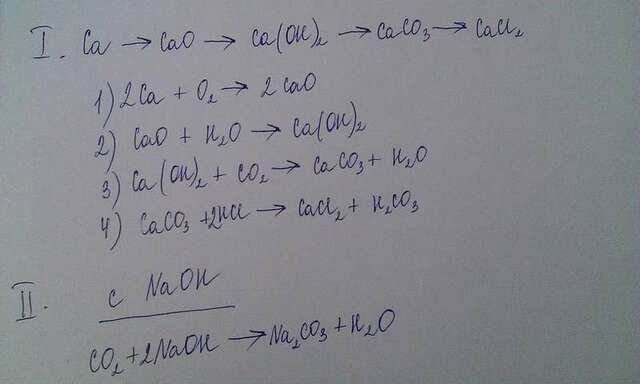 I. Ca → CaO → Ca(OH)₂ → CaCO₃ → CaCl₂
1) 2Ca + O₂ → 2CaO
2) CaO + H₂O → Ca(OH)₂
3) Ca(OH)₂ + CO₂ → CaCO₃ + H₂O
4) CaCO₃ + 2HCl → CaCl₂ + H₂CO₃
II. с NaOH
CO₂ + 2NaOH → Na₂CO₃ + H₂O